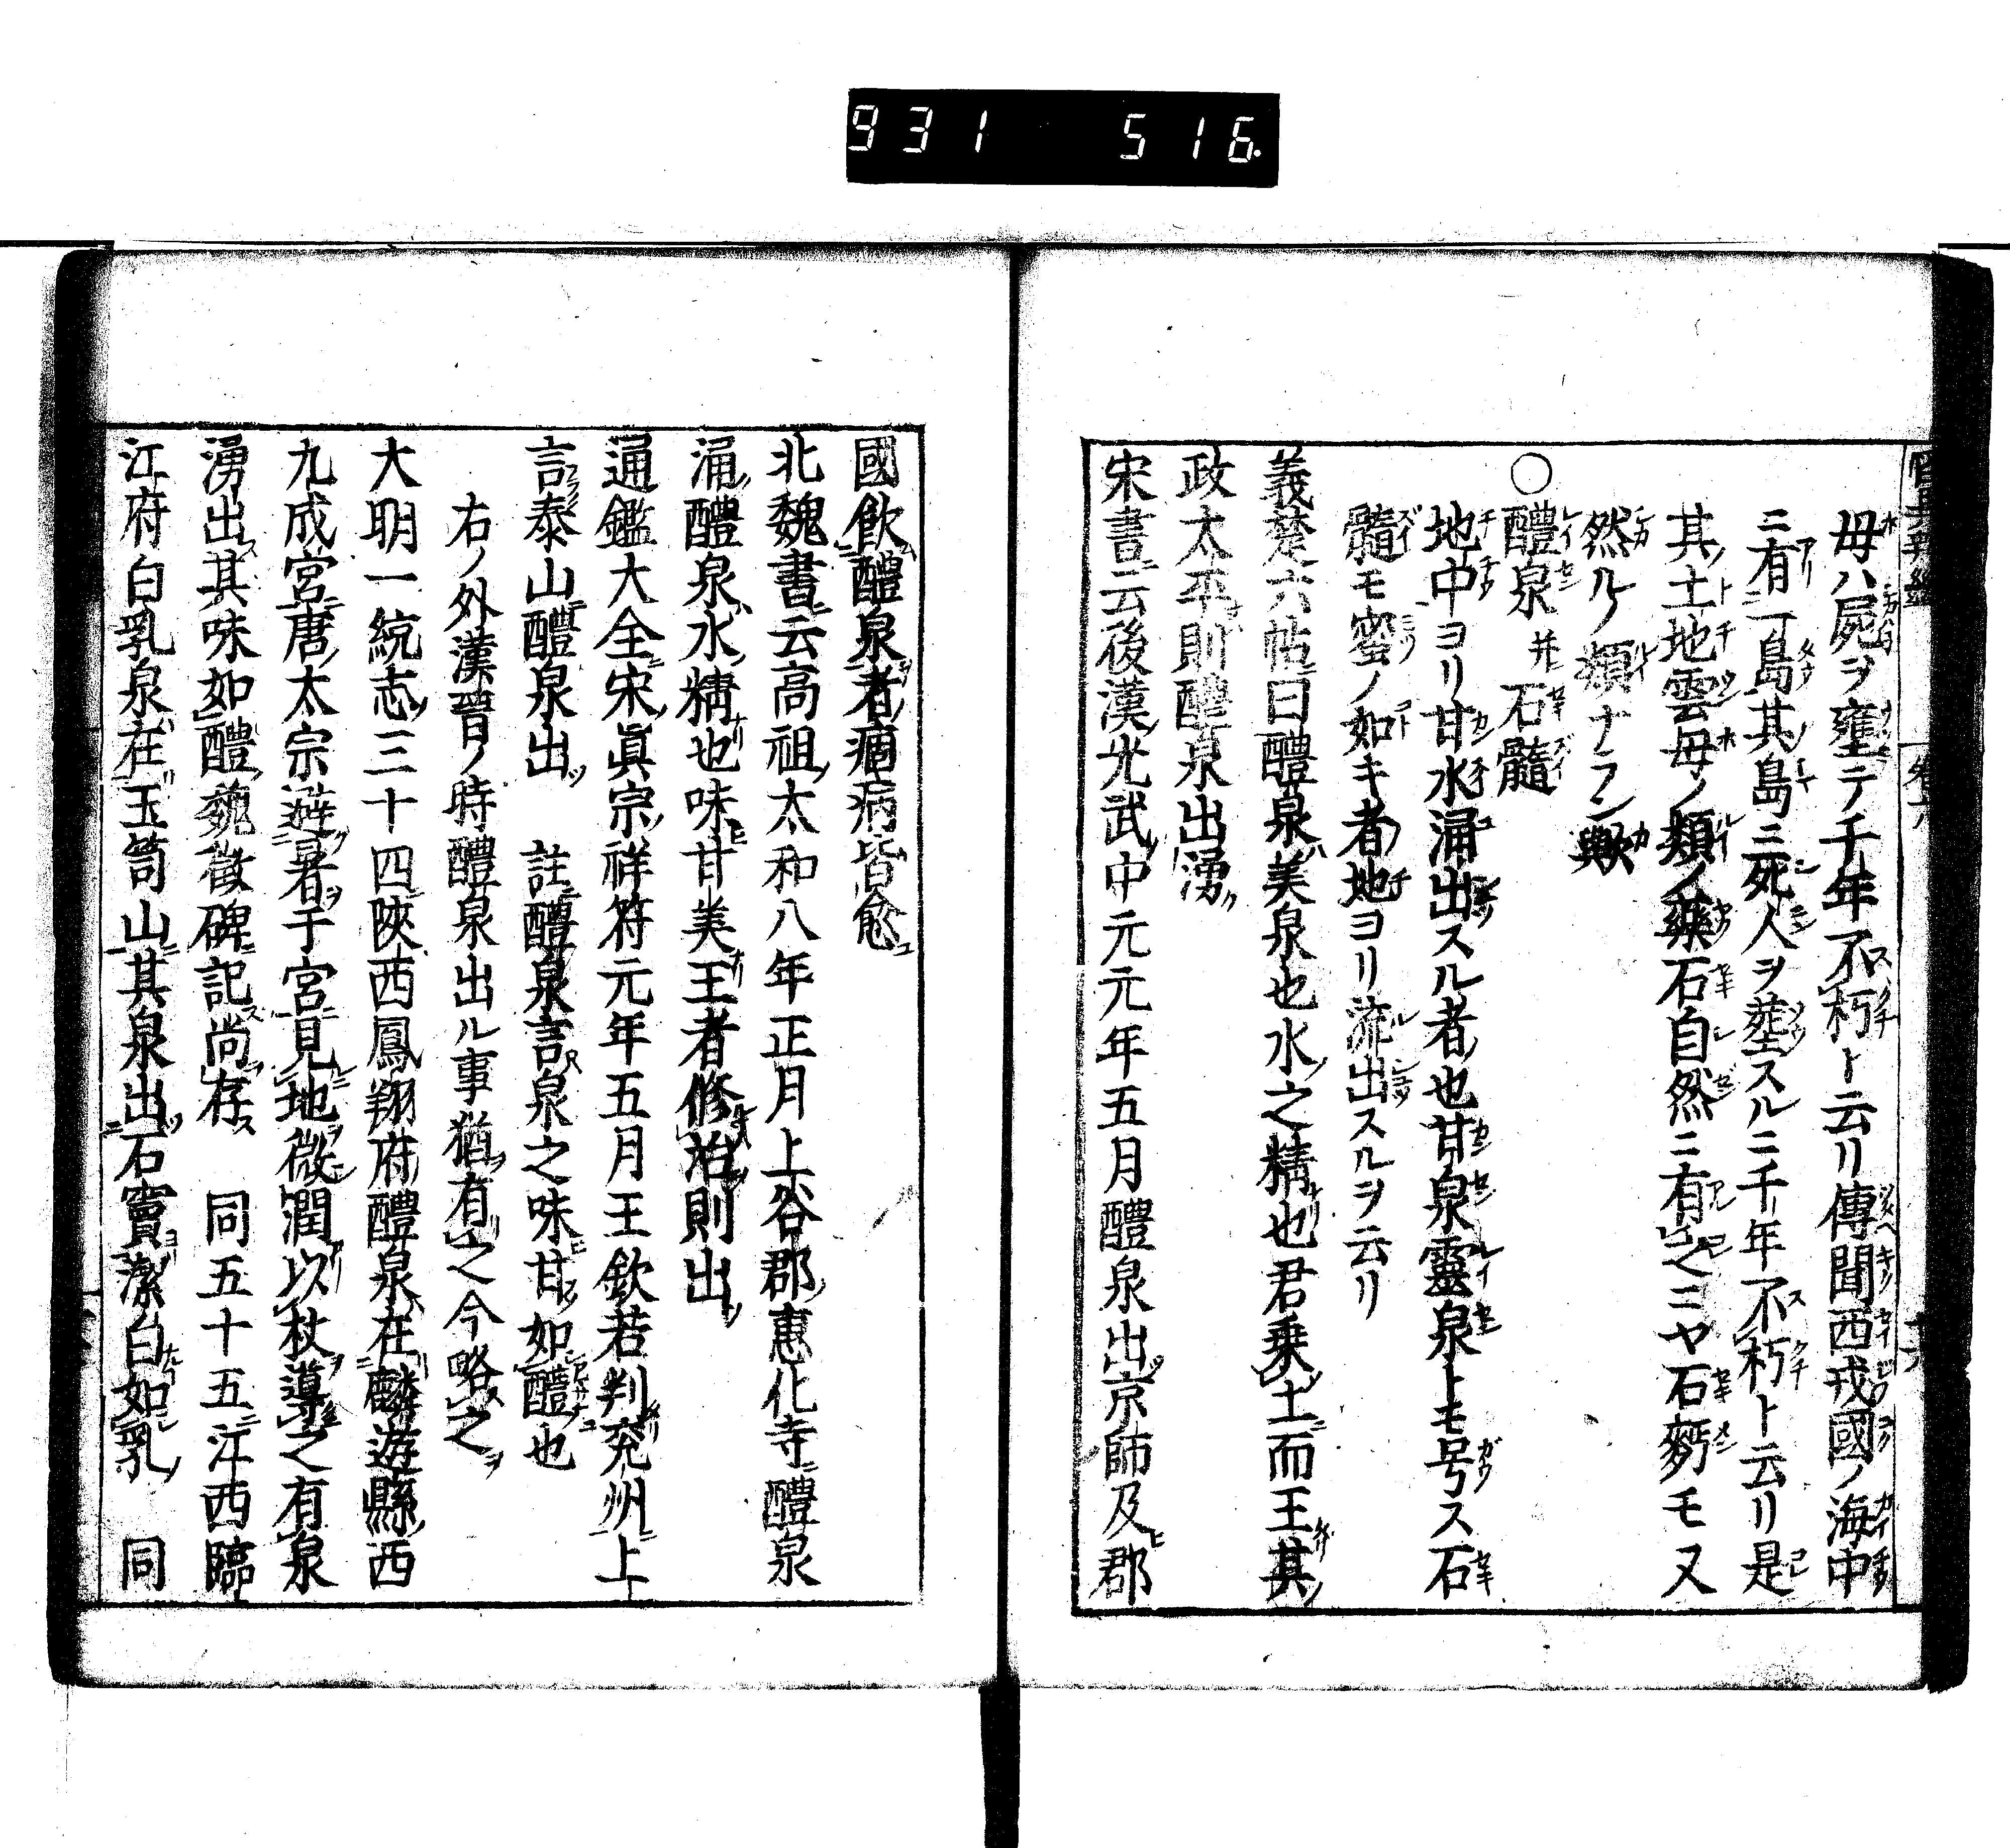 931 516
母ハ屍ヲ壅テ千年不朽ト云リ傳聞西戎國ノ海中
ニ有一島其島ニ死人ヲ葬スルニ千年不朽ト云リ是
其土地雲母ノ類ノ藥石自然ニ有之ニヤ石麪モ又
然ルノ類ナラン歟
○醴泉 并石髓
地中ヨリ甘水涌出スル者也甘泉靈泉トモ号ス石
髓モ蜜ノ如キ者地ヨリ流出スルヲ云リ
義楚六帖曰醴泉美泉也水之精也君乗土而王其
政太平則醴泉出湧
宋書云後漢光武中元元年五月醴泉出京師及郡
國飲醴泉者痼病皆愈
北魏書云高祖太和八年正月上谷郡惠化寺醴泉
涌醴泉水精也味甘美王者修治則出
通鑑大全宋眞宗祥符元年五月王欽若判兗州上
言泰山醴泉出 註醴泉言泉之味甘如醴也
右ノ外漢晉ノ時醴泉出ル事猶有之今略之
大明一統志三十四陝西鳳翔府醴泉在麟遊縣西
九成宮唐太宗避暑于宮見地微潤以杖導之有泉
湧出其味如醴魏徴碑記尚存 同五十五江西臨
江府白乳泉在玉笥山其泉出石竇潔白如乳 同